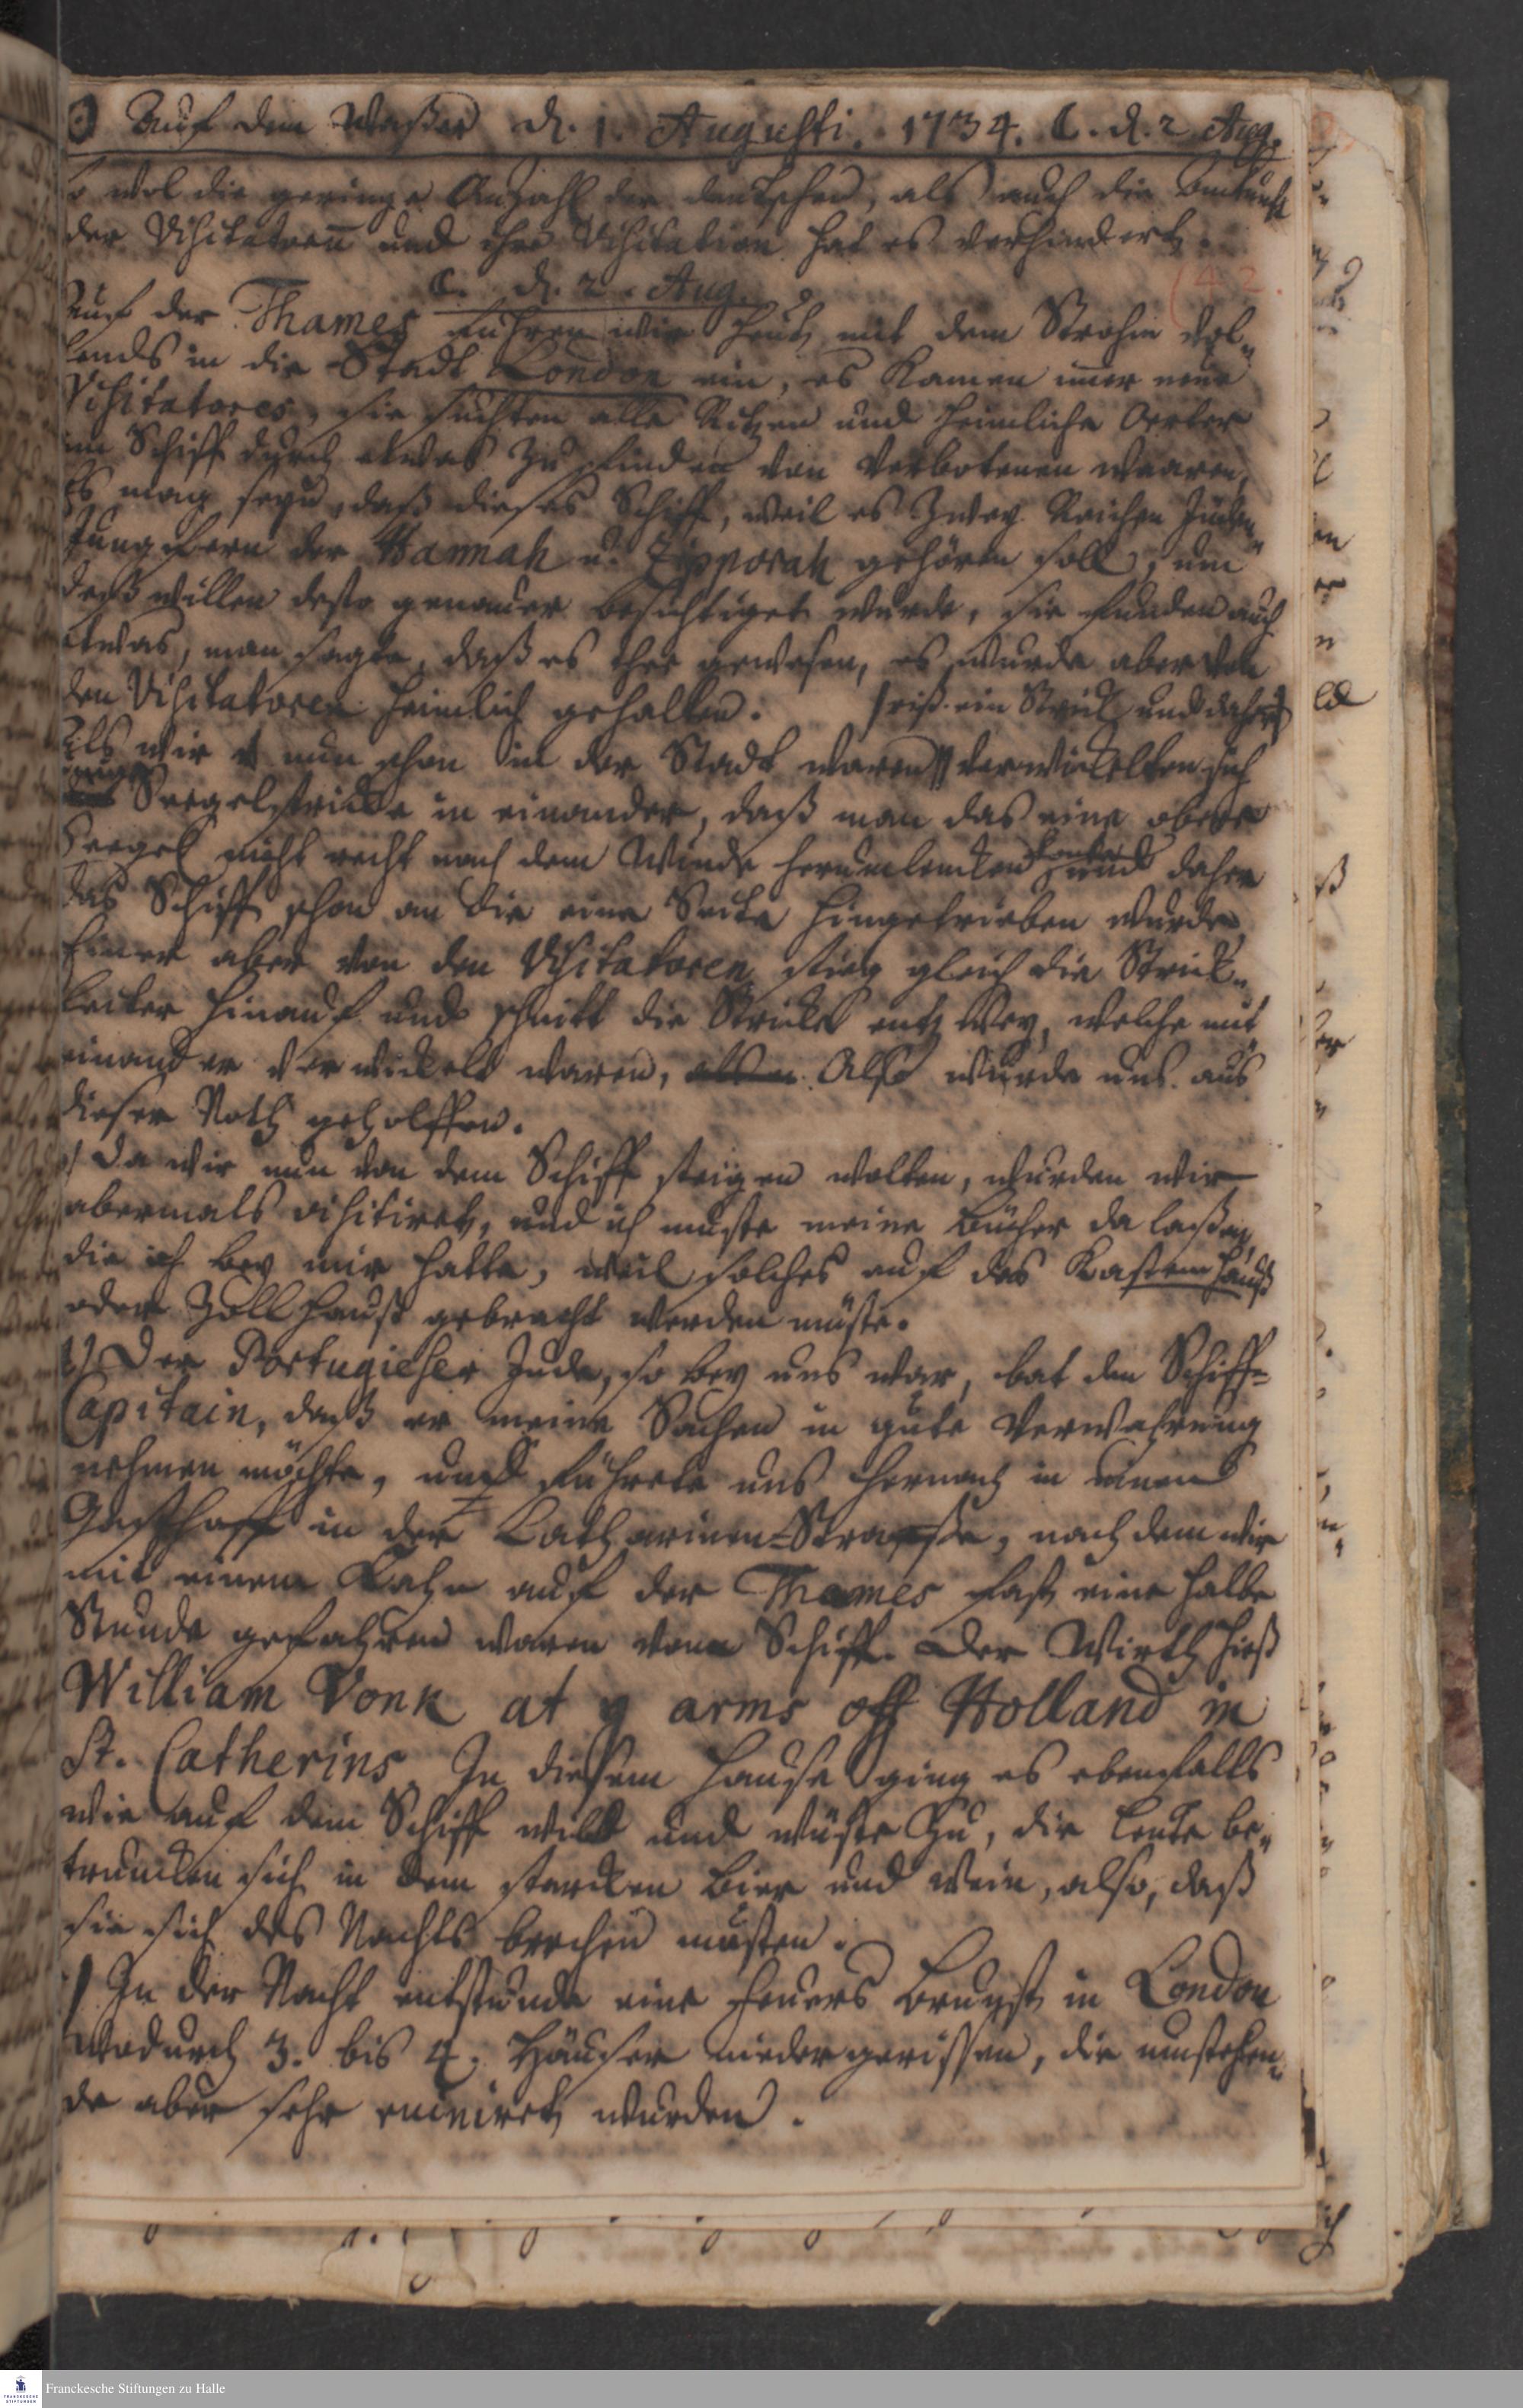 ☉ Auf dem Waßer d. 1. Augusti. 1734. ☾. d. 2 Aug.
so wol die geringe Anzahl der deutschen, als auch die Ankunft
der Visitatorn und ihre Visitation hat es verhindert.
☾. d. 2. Aug.
(42.
Auf der Thames fuhren wir heute mit dem Strohm vol„
lends in die Stadt London ein, es kamen imer neue
Visitatores, sie suchten alle Ritzen und heimliche Oerter
im Schiff durch etwas zu finden von verbotenen waaren,
Es mag seyn, daß dieses Schiff, weil es zwey Reichen Juden„
Jungfern der Hannah u. Zipporah gehören soll, um
deß willen desto genauer besichtiget wurde, sie funden auch
etwas, man sagte, daß es thee gewesen, es wurde aber von
den Visitatoren heimlich gehalten. riß ein Strick und daher
Als wir nun schon in der Stadt waren verwickelten sich
einige Seegelstricke in einander, daß man das eine obere
Seegel nicht recht nach dem Winde herumlencken konte und daher
das Schiff schon an die eine Seite hingetrieben wurde
Einer aber von den Visitatoren stieg gleich die Strick„
leiter hinauf und schnitt die Stricke entzwey, welche mit
einander verwickelt waren, Also wurde uns aus
dieser Noth geholffen.
Da wir nun von dem Schiff steigen wolten, wurden wir
abermals visitiret, und ich muste meine Bücher da laßen,
die ich bey mir hatte, weil solches auf das Kastem hauß
oder Zollhauß gebracht werden müste.
Der Portugieser Jude, so bey uns war, bat den Schiff-
Capitain, daß er meine Sachen in gute Verwahrung
nehmen möchte, und führete uns hernach in einen
Gasthoff in der Catharinen-Strasse, nach dem wir
mit einem Kahn auf der Thames fast eine halbe
Stunde gefahren waren vom Schiff. Der Wirth hieß
William Vonk at y arms off Holland in
St. Catherins. In diesem Hause ging es ebenfalls
wie auf dem Schiff wild und wüste zu, die Leute be„
truncken sich in dem starcken Bier und Wein, also, daß
sie sich des Nachts brechen musten.
In der Nacht entstunde eine Feuers Brunst in London
wodurch 3. bis 4. Häuser niedergerissen, die umstehen„
de aber sehr ruiniret wurden.
Franckesche Stiftungen zu Halle